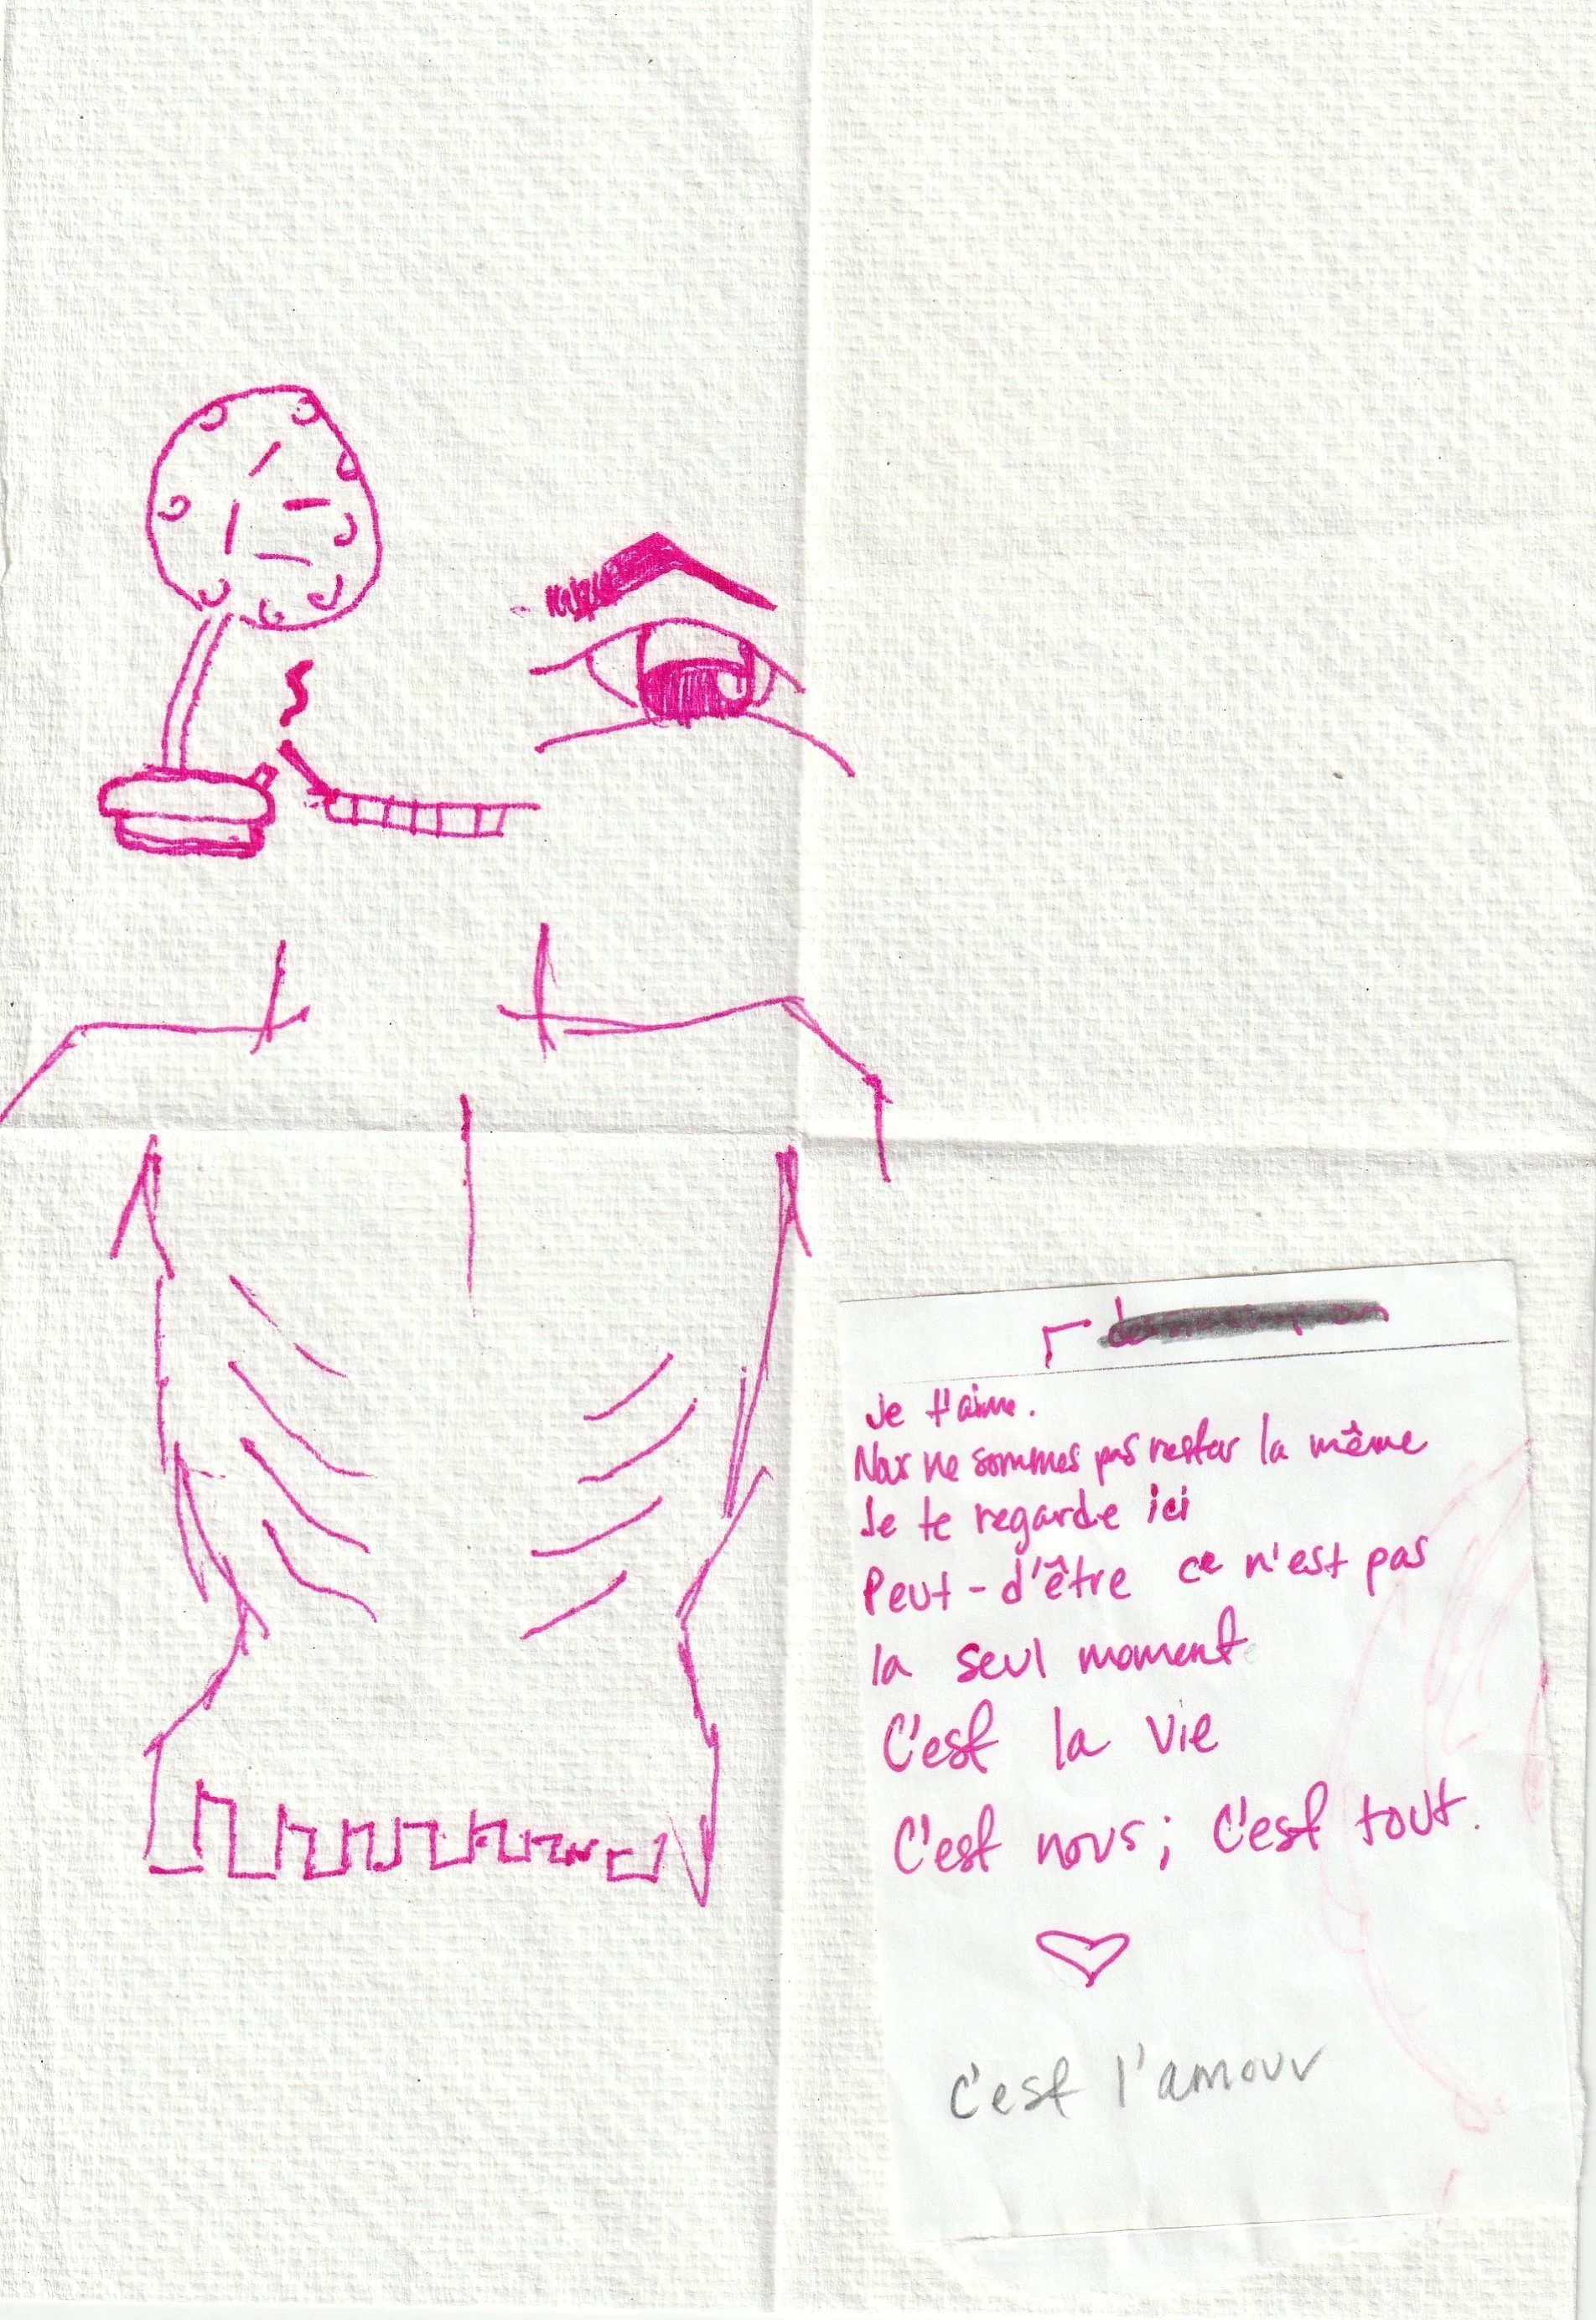 Je t'aime.
Nous ne sommes pas rester la même
Je te regarde ici
Peut-d'être ce n'est pas
la seul moment
C'est la vie
C'est nous; c'est tout.
c'est l'amour